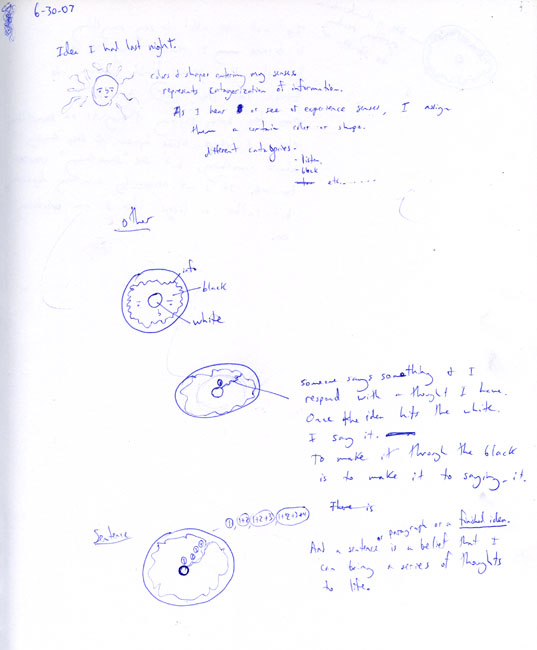 6-30-07
Idea I had last night.
colors & shapes entering my senses.
represents catagorization of information.
As I hear or see or experience senses, I assign
them a certain color or shape.
different catagories.
- listen.
- black
etc.......
other
info
black
white
someone says something & I
respond with a thought I have.
Once the idea hits the white.
I say it.
To make it through the black
is to make it to saying it.
There is
① 1+2 1+2+3 1+2+3+4
Sentence
or paragraph or a finished idea.
And a sentence is a belief that I
can bring a series of thoughts
to life.